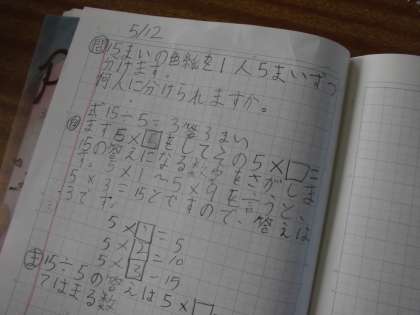 5/12
問 15まいの色紙を1人5まいずつ
分けます。
何人に分けられますか。
式15÷5=3 答3まい
自 まず5×□をしてその5×□=
15の答えになる数をさがしま
す。5×1〜5×9を言うと、
5×3=15とでますので、答えは
3です。
5×1=5
5×2=10
5×3=15
ま 15÷5の答えは5×□
てはまる数